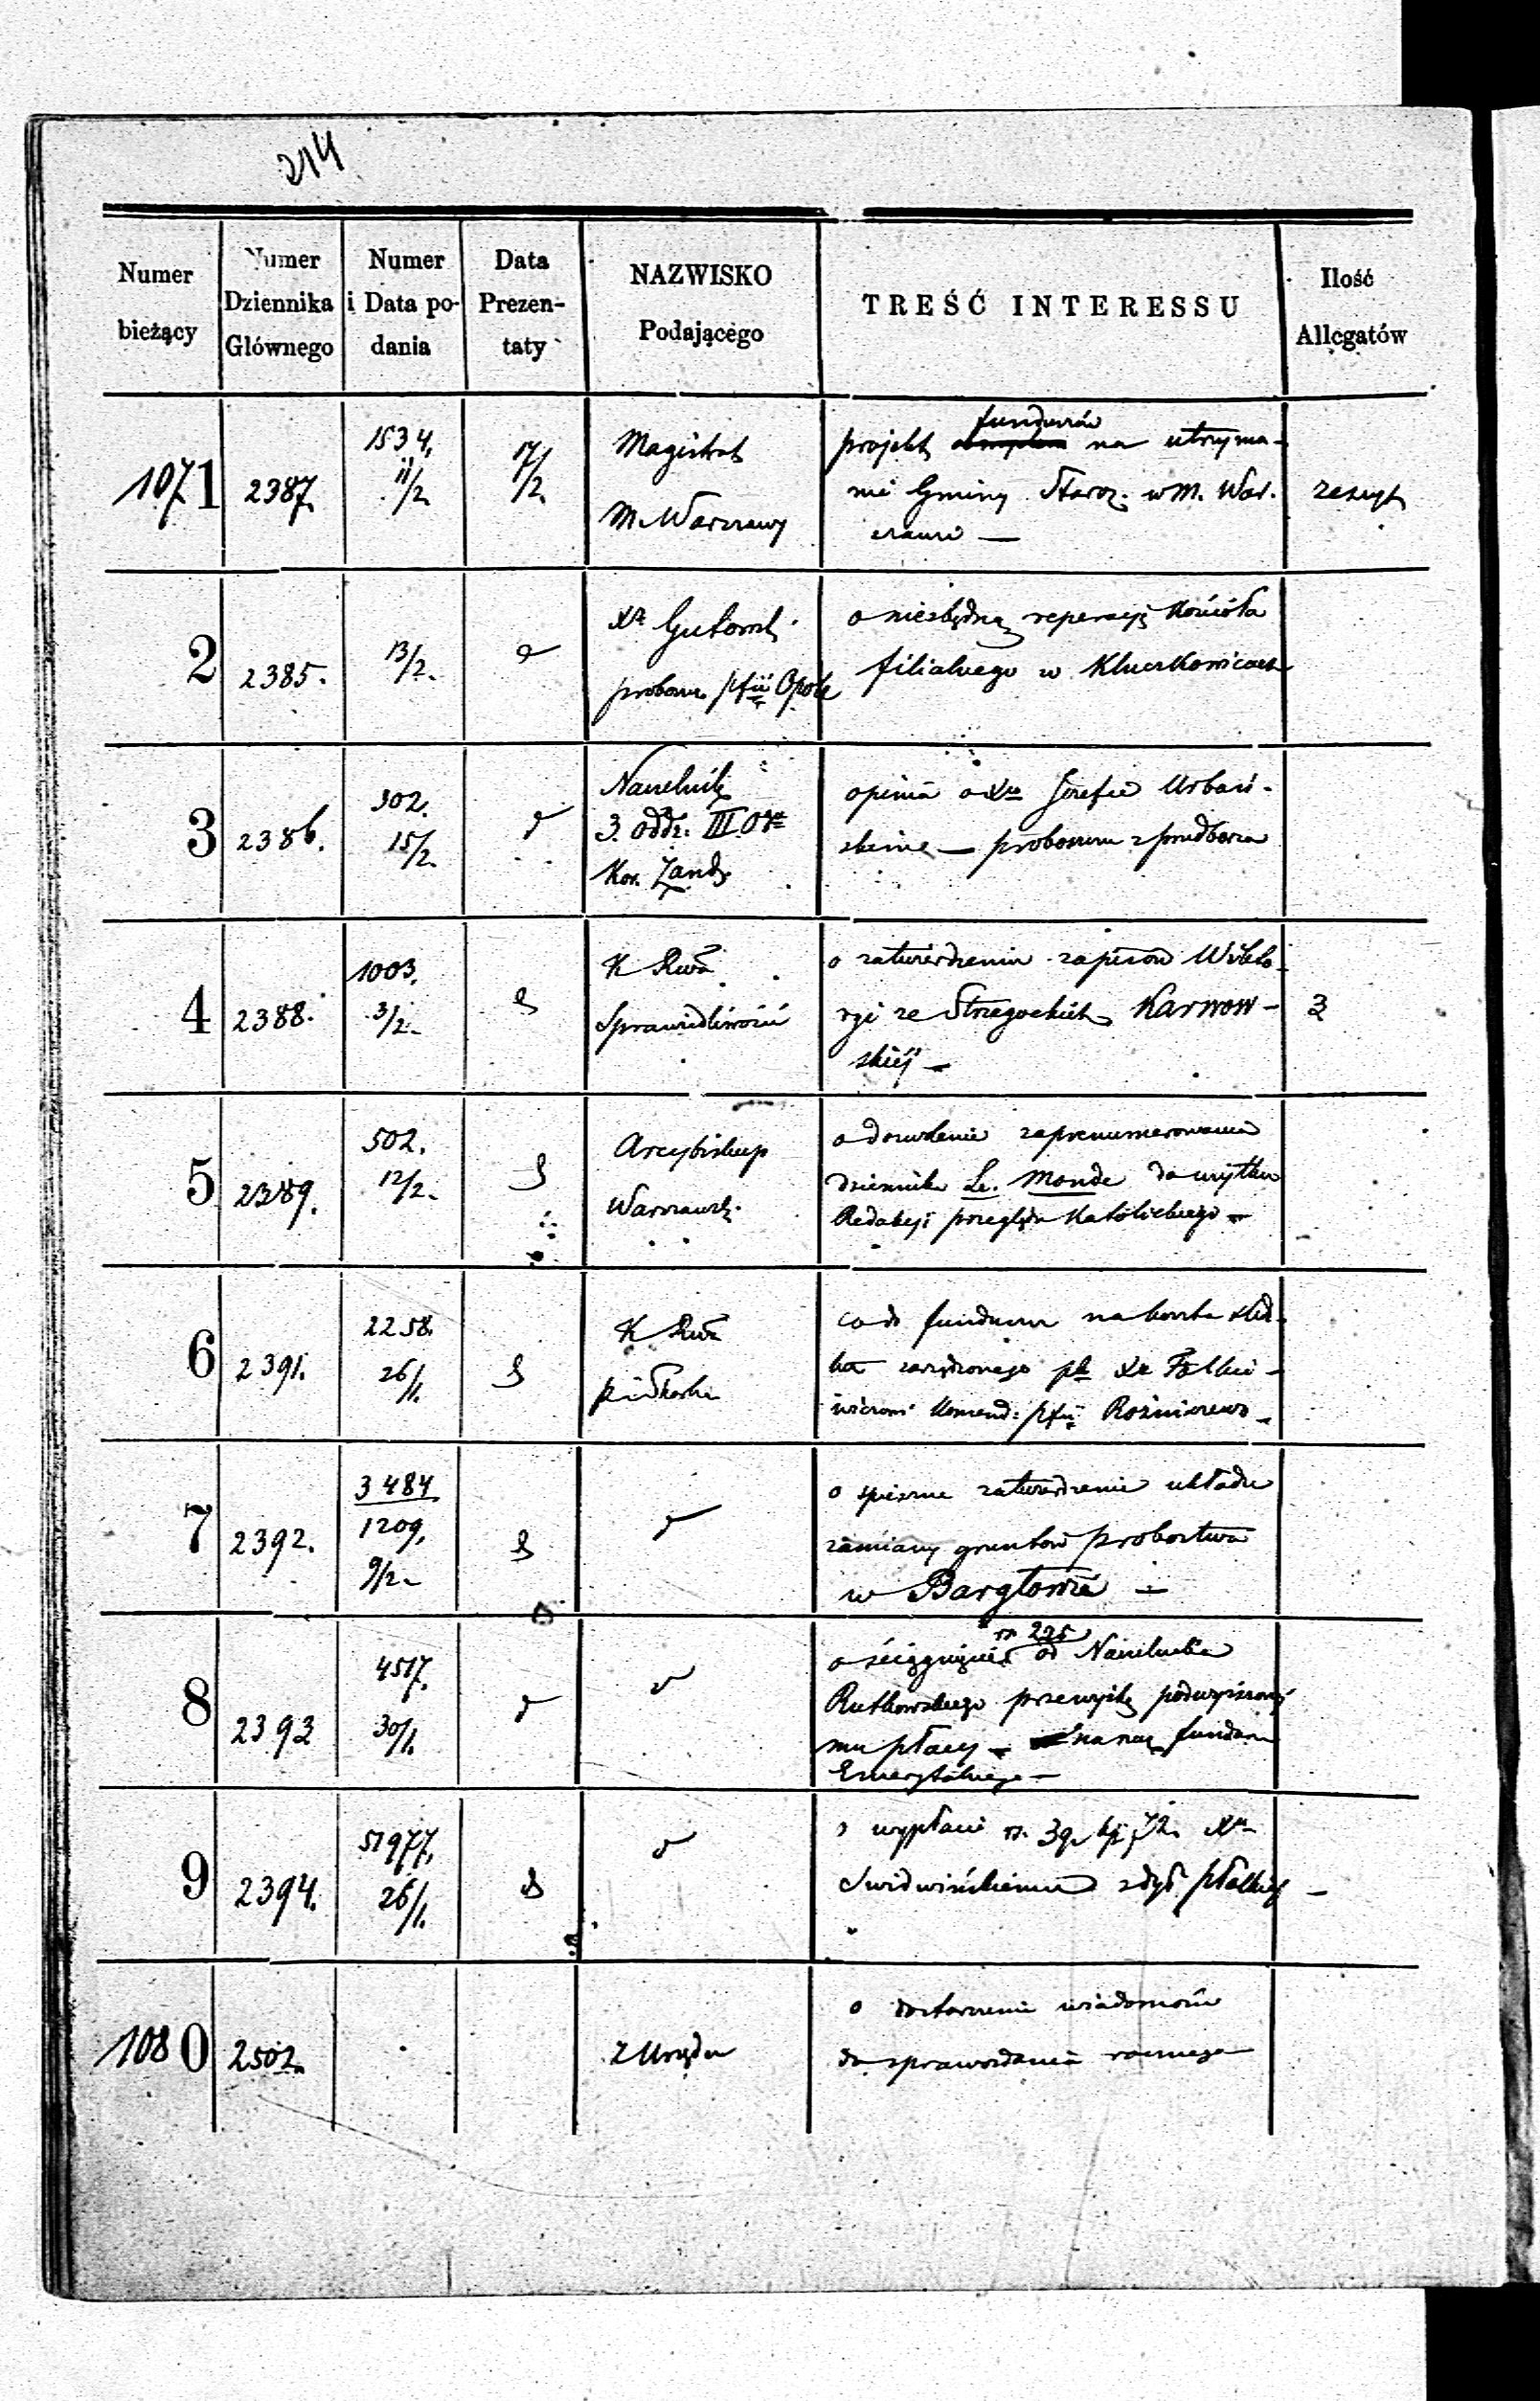 214
Numer bieżący
Numer Dziennika Głównego
Numer i Data podania
Data Prezentaty
NAZWISKO Podającego
TREŚĆ INTERESSU
Ilość Allegatów
1071 2387 1534. 11/2 17/2. Magistrat M. Warszawy
funduszów
projekt na utrzyma-
nie Gminy Staroz. w M. War-
szawie —
zeszyt
2 2385. 13/2. Xdz Gutowsk. probosz. pfii Opole
o niezbędną reperacyę Kościoła
filialnego w Kluczkowicach
3 2386. 302. 15/2. Naczelnik
3. Oddz. III. Okr
Kor. Żand.
opinia o Xdzu Józefie Urbań-
skim — proboszczu z Przedborza
4 2388. 1003. 3/2. K Rwa
Sprawiedliwości
o zatwierdzenie zapisów Wikto-
ryi ze Strzegockich Karwow-
skiéj —
3
5 2389. 502. 12/2. Arcybiskup
Warszawsk.
o dozwolenie zaprenumerowania
dziennika Le Monde do użytku
Redakcyi przeglądu Katolickiego —
6 2391. 2258. 26/1. K Rwa
co do funduszu na koszta
Komend: pfii Rożniszewo —
7 2392. 3484
1209.
9/2.
o zatwierdzenie układu
zamiany gruntów probostwa
w Bargłowie —
8 2393 4517. 30/1.
rs. 225
o ściągnięcie od Naczelnika
Rutkowskiego przewyżkę podwyższonéj
mu płacy — na rzecz funduszu
Emerytalnego —
9 2394. 51977. 26/1.
o wypłacie rs. 39 kp 72. Xdzu
Swidwińskiemu z dyec. płockiéj —
1080 2502. Z Urzędu
o dostarczenie wiadomości
do sprawozdania rocznego